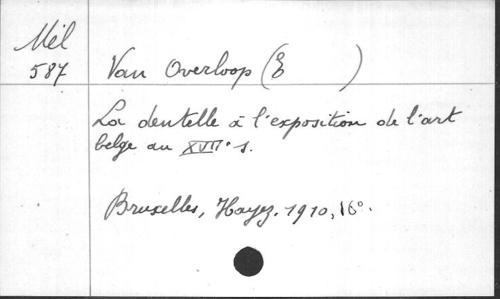 Mél
587
Van Overloop (E )
La dentelle à l'exposition de l'art
belge au XVIIe s.
Bruxelles, Hayez, 1910, 16°.